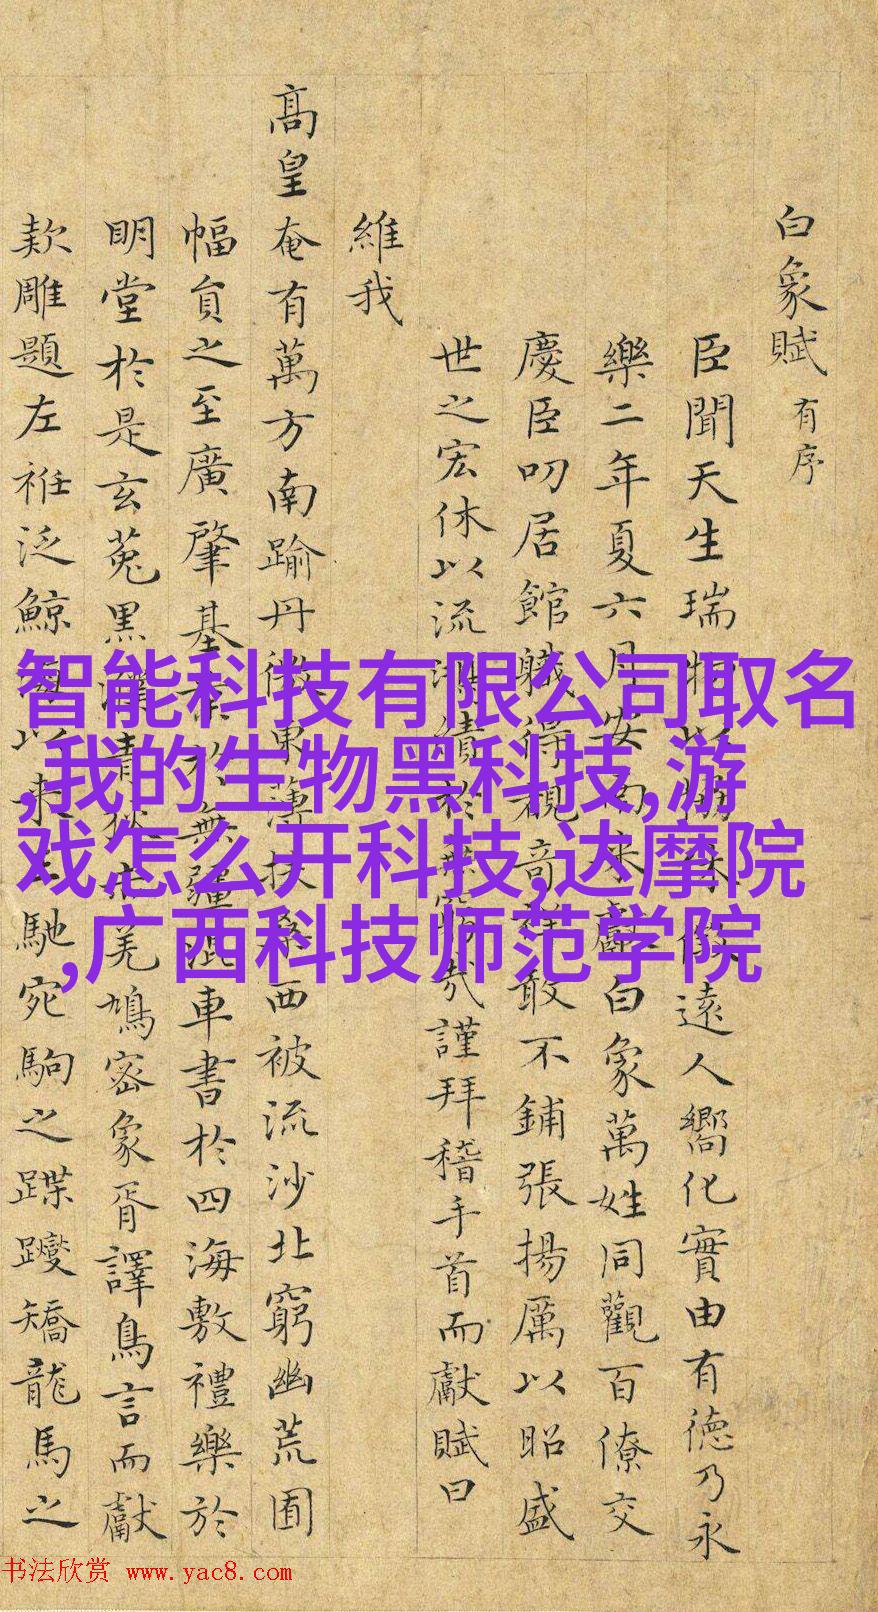 白象賦有序
臣聞天生瑞物以彰保遠人嚮化實由有德乃永
樂二年夏六月安南來獻白象萬姓同觀百僚交
慶臣叨居館職得視奇祥敢不鋪張揚厲以昭盛
世之宏休以流鴻績於無窮哉謹拜稽手首而獻賦曰
維我
高皇奄有萬方南踰丹徼東薄扶桑西被流沙北窮幽荒圄
幅員之至廣肇基於無疆混車書於四海敷禮樂於
明堂於是玄菟黑漢青羌鳩密象胥譯鳥言而獻
款雕題左袵泛鯨海以來馳宛駒之蹀躞矯龍馬之
智能科技有限公司取名
,我的生物黑科技,游
戏怎么开科技,达摩院
,广西科技师范学院
书法欣赏 www.yac8.com